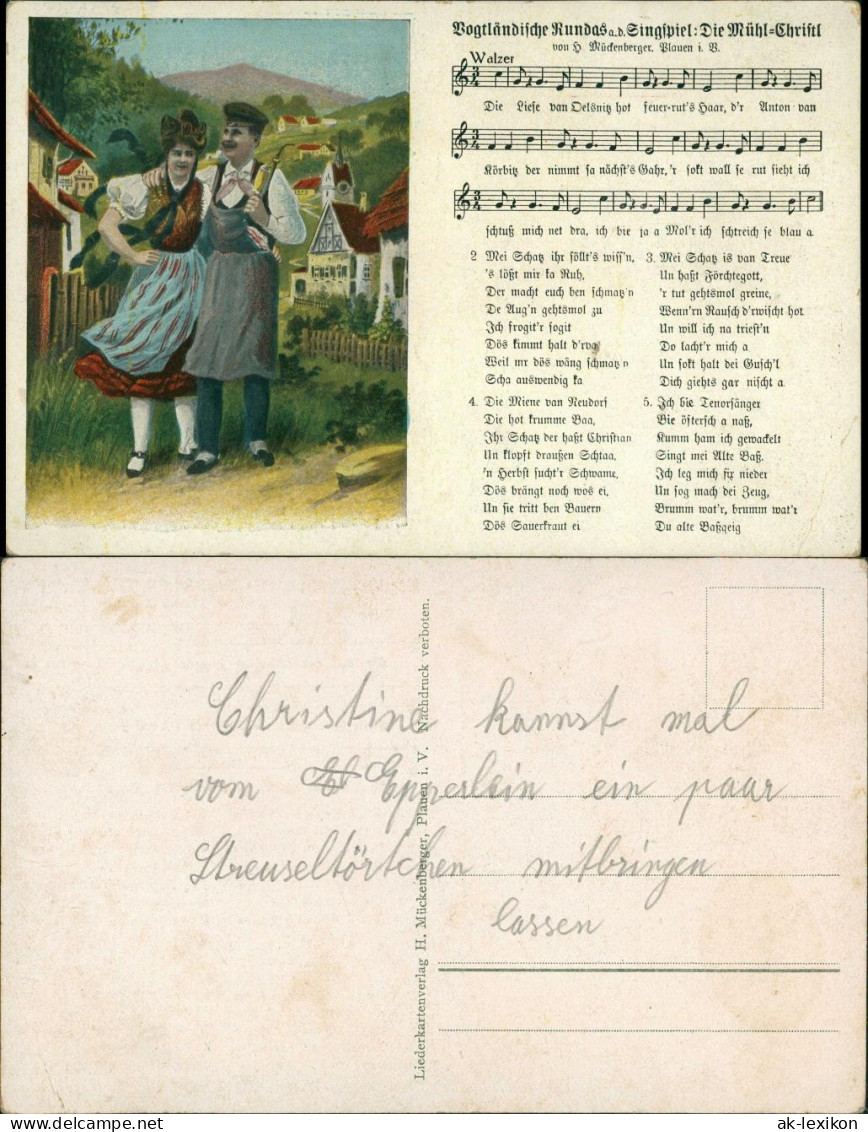 Vogtländische Rundas a.d. Singspiel: Die Mühl=Christl
von H. Mückenberger. Plauen i. V.
Walzer
Die Liese van Oelsnitz hot feuer-rut's Haar, d'r Anton van
Körbitz der nimmt sa nächst's Gahr, 'r sokt wall se rut sieht ich
schtuß mich net dra, ich bie ja a Mol'r ich schtreich se blau a
2 Mei Schatz ihr söllt's wiss'n,
's lößt mir ka Ruh,
Der macht euch ben schmatz'n
De Aug'n gehtsmol zu
Ich frogit'r sogit
Dös kimmt halt d'rva
Weil mr dös wäng schmatz'n
Scha auswendig ka
3. Mei Schatz is van Treue
Un haßt Förchtegott,
'r tut gehtsmol greine,
Wenn'rn Rausch d'rwischt hot
Un will ich na triest'n
Do lacht'r mich a
Un sokt halt dei Gusch'l
Dich giehts gar nischt a
4. Die Miene van Neudorf
Die hot krumme Baa,
Ihr Schatz der haßt Christian
Un klopft draußen Schtaa.
'n Herbst sucht'r Schwame,
Dös brängt noch wos ei,
Un sie tritt ben Bauern
Dös Sauerkraut ei
5. Ich bie Tenorsänger
Bie östersch a naß,
Kumm ham ich gewackelt
Singt mei Alte Baß.
Ich leg mich fix nieder
Un sog mach dei Zeug,
Brumm wat'r, brumm wat'r
Du alte Baßgeig
Christine kannst mal
vom Epperlein ein paar
Streuseltörtchen mitbringen
lassen
Liederkartenverlag H. Mückenberger, Plauen i. V. Nachdruck verboten.
www.delcampe.net
ak-lexikon